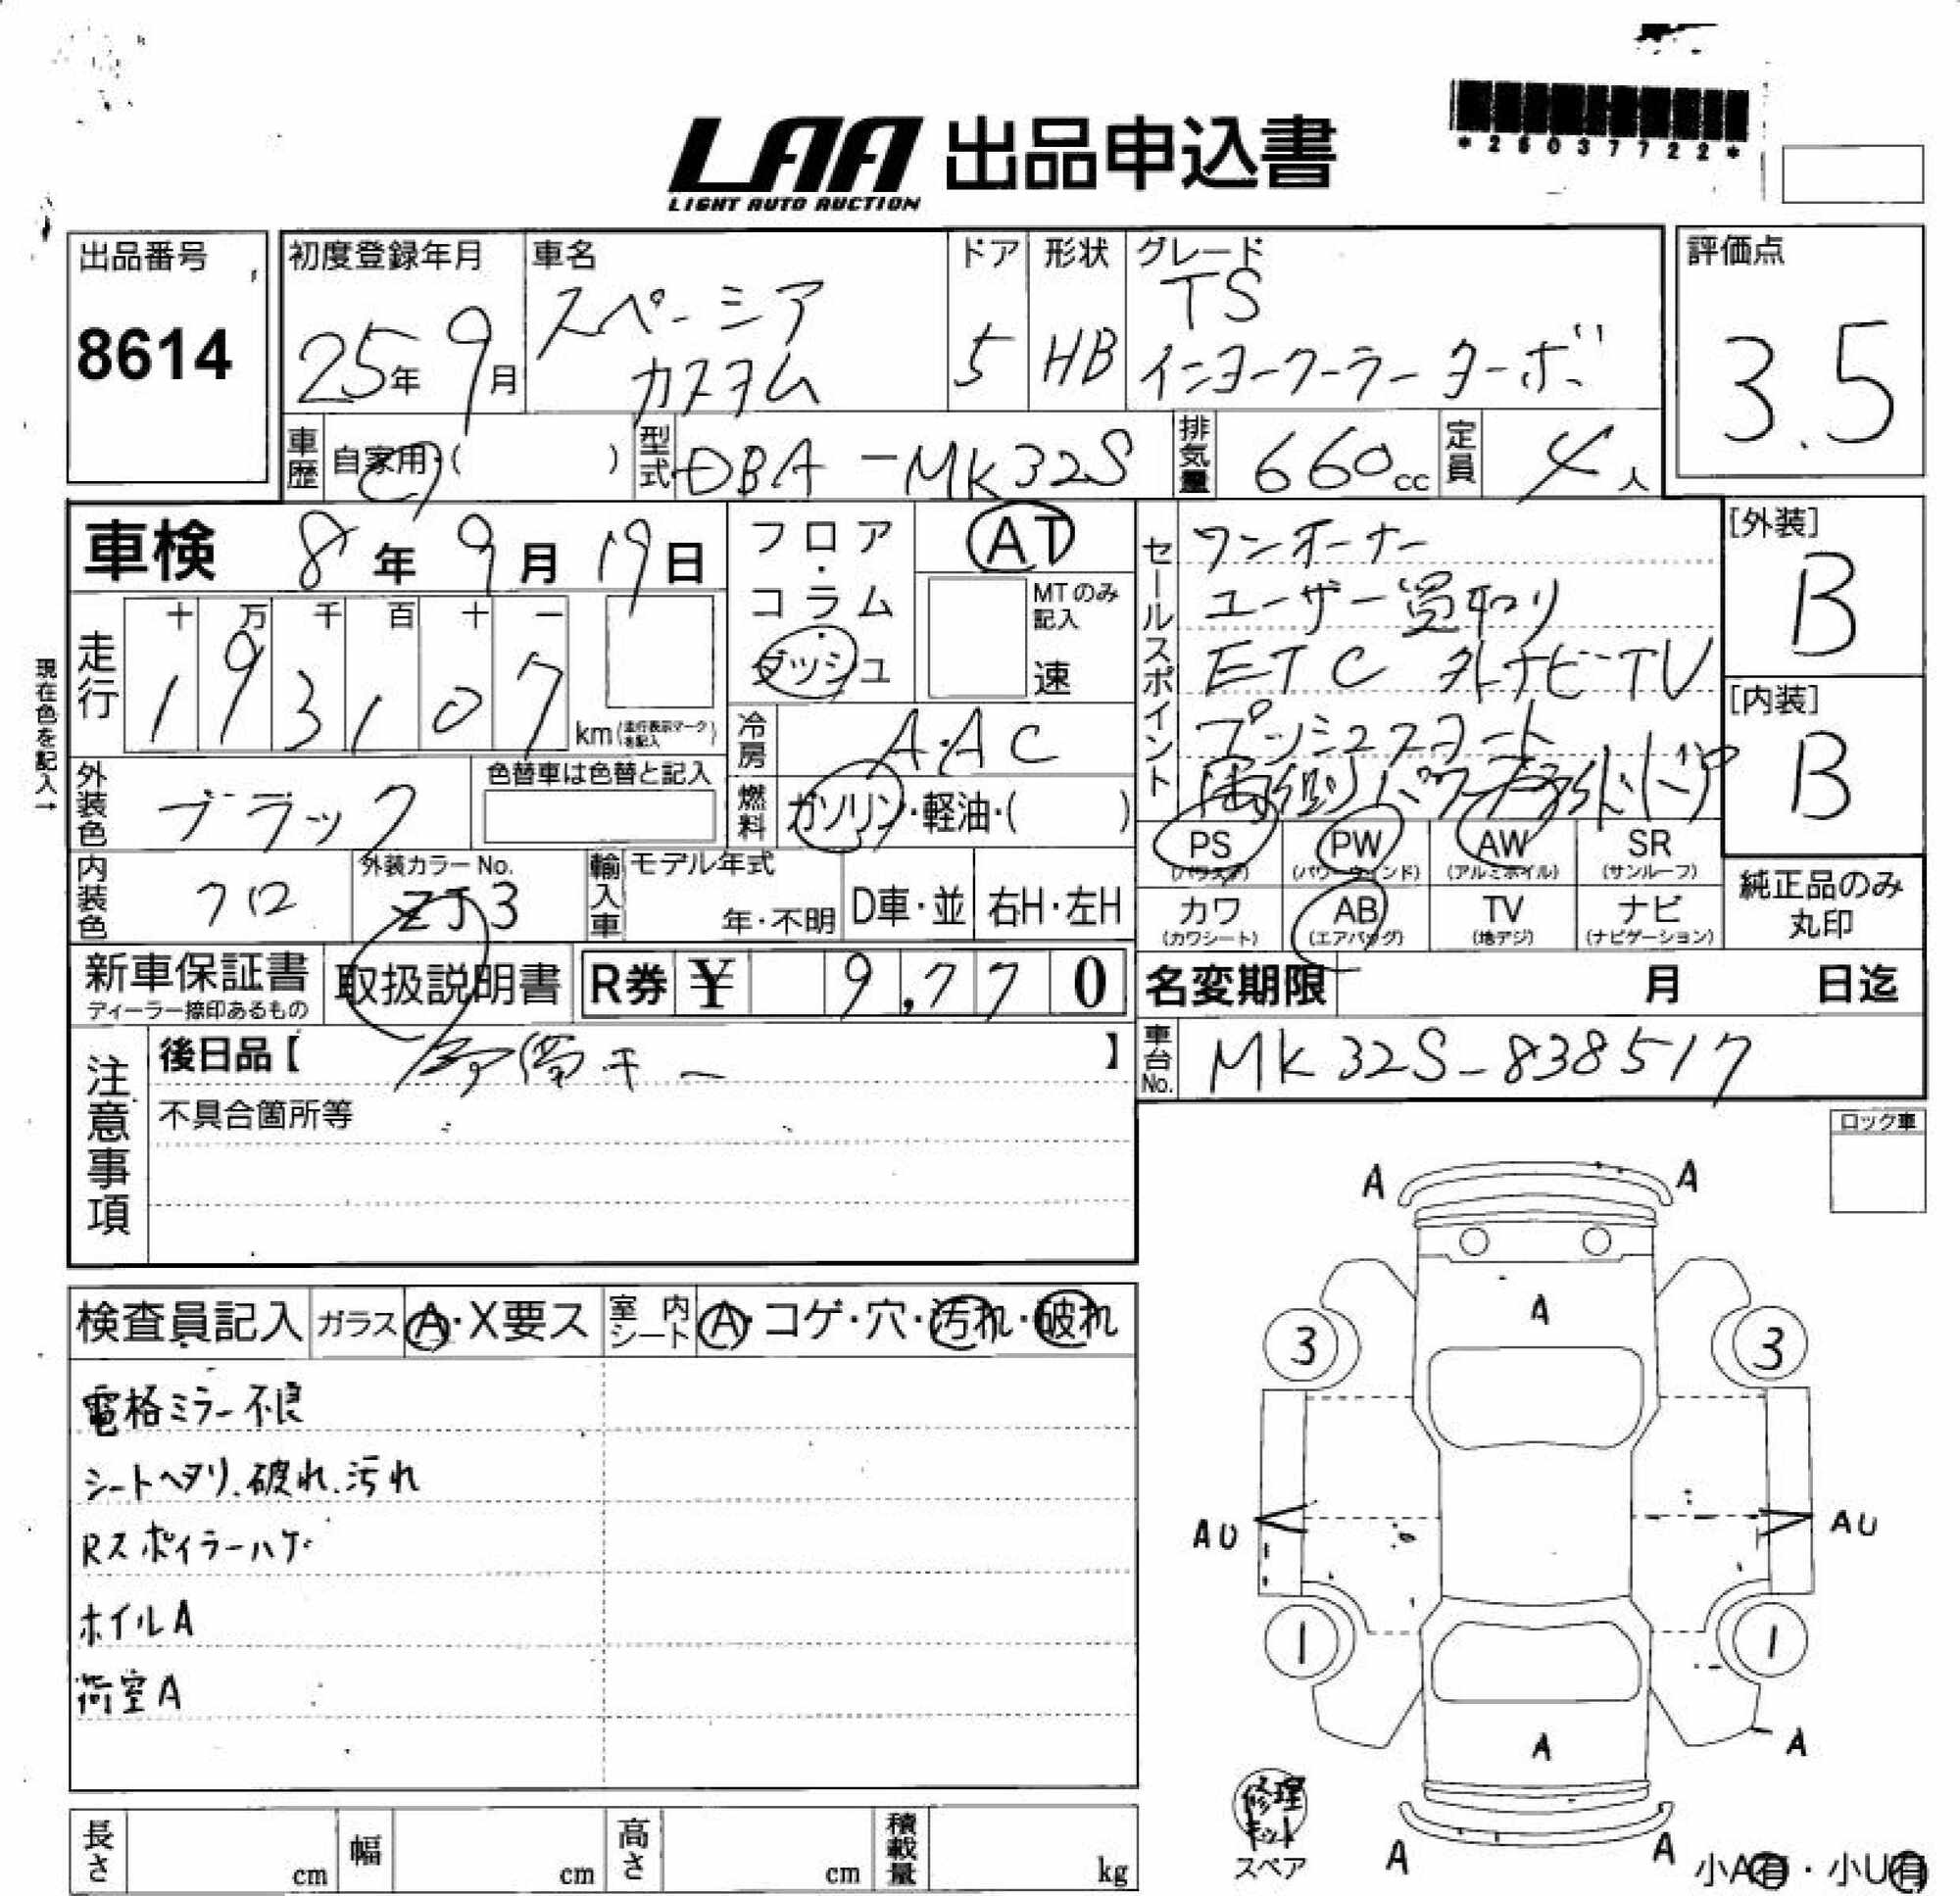 *26037722*
LAA 出品申込書
LIGHT AUTO AUCTION
出品番号
8614
初度登録年月
25年9月
車名
スペーシア
カスタム
ドア
5
形状
HB
グレード
TS
インタークーラーターボ
評価点
3.5
車歴
自家用・( )
型式
DBA-MK32S
排気量
660cc
定員
4人
車検 8年9月19日
フロア・コラム・ダッシュ
AT
MTのみ記入
速
セールスポイント
ワンオーナー
ユーザー買取り
ETC 外ナビ・TV
プッシュスタート
両側パワースライドドア
[外装]
B
[内装]
B
現在色を記入→
走行
十 万 千 百 十 一
193,107
km(走行表示マークを記入)
冷房
A・AC
燃料
ガソリン・軽油・( )
外装色
ブラック
色替車は色替と記入
内装色
クロ
外装カラーNo.
ZJ3
輸入車
モデル年式
年・不明
D車・並
右H・左H
PS (パワステ)
PW (パワーウィンド)
AW (アルミホイル)
SR (サンルーフ)
カワ (カワシート)
AB (エアバッグ)
TV (地デジ)
ナビ (ナビゲーション)
純正品のみ
丸印
新車保証書
ディーラー捺印あるもの
取扱説明書
R券 ¥ 9,770
名変期限 月 日迄
車台No.
MK32S-838517
注意事項
後日品【 携帯キー 】
不具合箇所等
ロック車
検査員記入
ガラス
A・X要ス
室内シート
A・コゲ・穴・汚れ・破れ
電格ミラー不良
シートヘタリ、破れ、汚れ
Rスポイラーハゲ
ホイルA
荷室A
A A
A
3 3
AU AU
1 1
A
A
A A
修理キット
スペア
小A有・小U有
長さ cm
幅 cm
高さ cm
積載量 kg